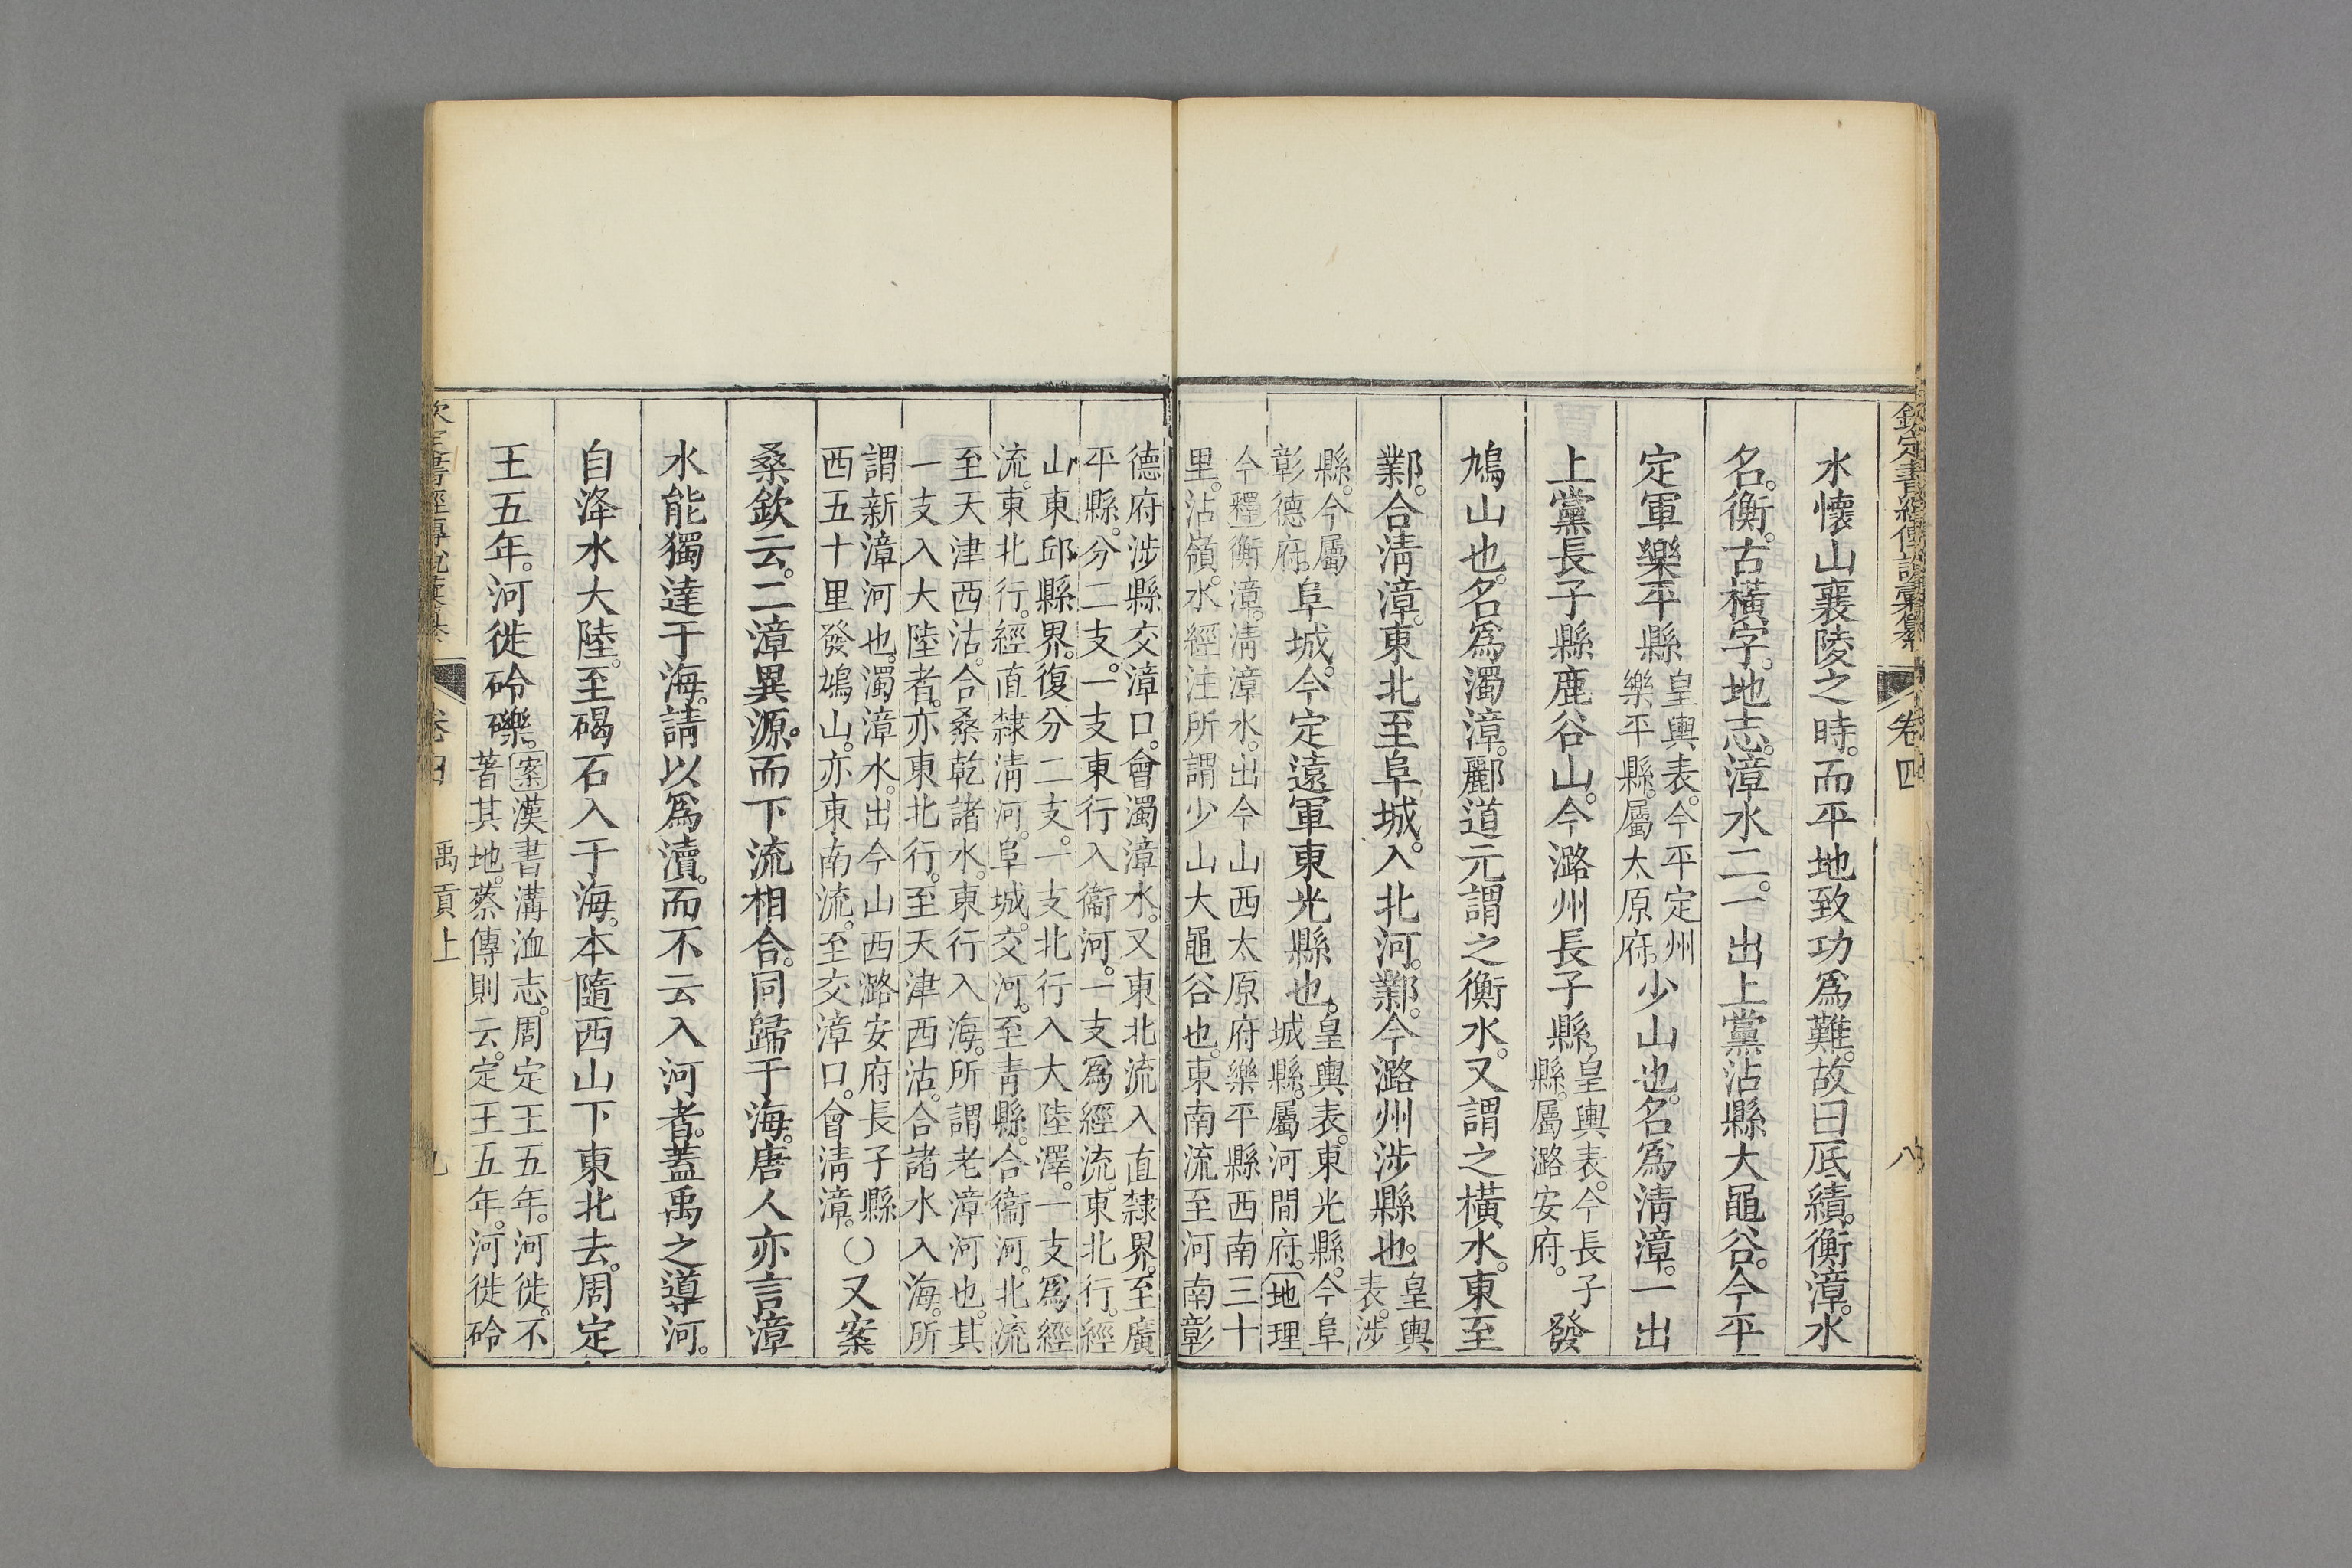 欽定書經傳說彙纂
卷四
八
水懷山襄陵之時。而平地致功爲難。故曰厎績。衡漳。水
名。衡。古橫字。地志。漳水二。一出上黨沾縣大黽谷。今平
定軍樂平縣
皇輿表。今平定州
樂平縣。屬太原府。
少山也。名爲淸漳。一出
上黨長子縣鹿谷山。今潞州長子縣。
皇輿表。今長子
縣。屬潞安府。
發
鳩山也。名爲濁漳。酈道元謂之衡水。又謂之橫水。東至
鄴。合淸漳。東北至阜城。入北河。鄴。今潞州涉縣也。
皇輿
表。涉
縣。今屬
彰德府。
阜城。今定遠軍東光縣也。
皇輿表。東光縣。今阜
城縣。屬河間府。
地理
今釋
衡漳。淸漳水。出今山西太原府樂平縣西南三十
里。沾嶺。水經注所謂少山大黽谷也。東南流至河南彰
德府涉縣交漳口。會濁漳水。又東北流入直隸界。至廣
平縣。分二支。一支東行入衞河。一支爲經流。東北行。經
山東邱縣界。復分二支。一支北行入大陸澤。一支爲經
流。東北行。經直隸淸河。阜城。交河。至靑縣。合衞河。北流
至天津西沽。合桑乾諸水。東行入海。所謂老漳河也。其
一支入大陸者。亦東北行。至天津西沽。合諸水入海。所
謂新漳河也。濁漳水。出今山西潞安府長子縣
西五十里發鳩山。亦東南流。至交漳口。會淸漳。
○又案
桑欽云。二漳異源。而下流相合。同歸于海。唐人亦言漳
水能獨達于海。請以爲瀆。而不云入河者。蓋禹之導河。
自洚水大陸。至碣石入于海。本隨西山下東北去。周定
王五年。河徙砱礫。
案
漢書溝洫志。周定王五年。河徙。不
著其地。蔡傳則云。定王五年。河徙砱
欽定書經傳說彙纂
卷四
禹貢上
九